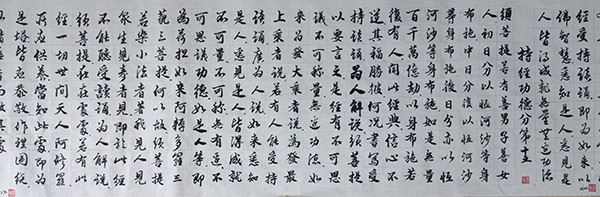 經受持讀誦即為如來以
佛智慧悉知是人悉見是
人皆得成就無量無邊功德
持經功德分第十五
須菩提若有善男子善女
人初日分以恒河沙等身
布施中日分復以恒河沙
等身布施後日分亦以恒
河沙等身布施如是無量
百千萬億劫以身布施若
後有人聞此經典信心不
逆其福勝彼何況書寫受
持讀誦為人解說須菩提
以要言之是經有不可思
議不可稱量無邊功德如
來為發大乘者說為發最
上乘者說若有人能受持
讀誦廣為人說如來悉知
是人悉見是人皆得成就
不可量不可稱無有邊不
可思議功德如是人等即
為荷擔如來阿耨多羅三
藐三菩提何以故須菩提
若樂小法者著我見人見
眾生見壽者見即於此經
不能聽受讀誦為人解說
須菩提在在處處若有此
經一切世間天人阿修羅
所應供養當知此處即為
是塔皆應恭敬作禮圍繞